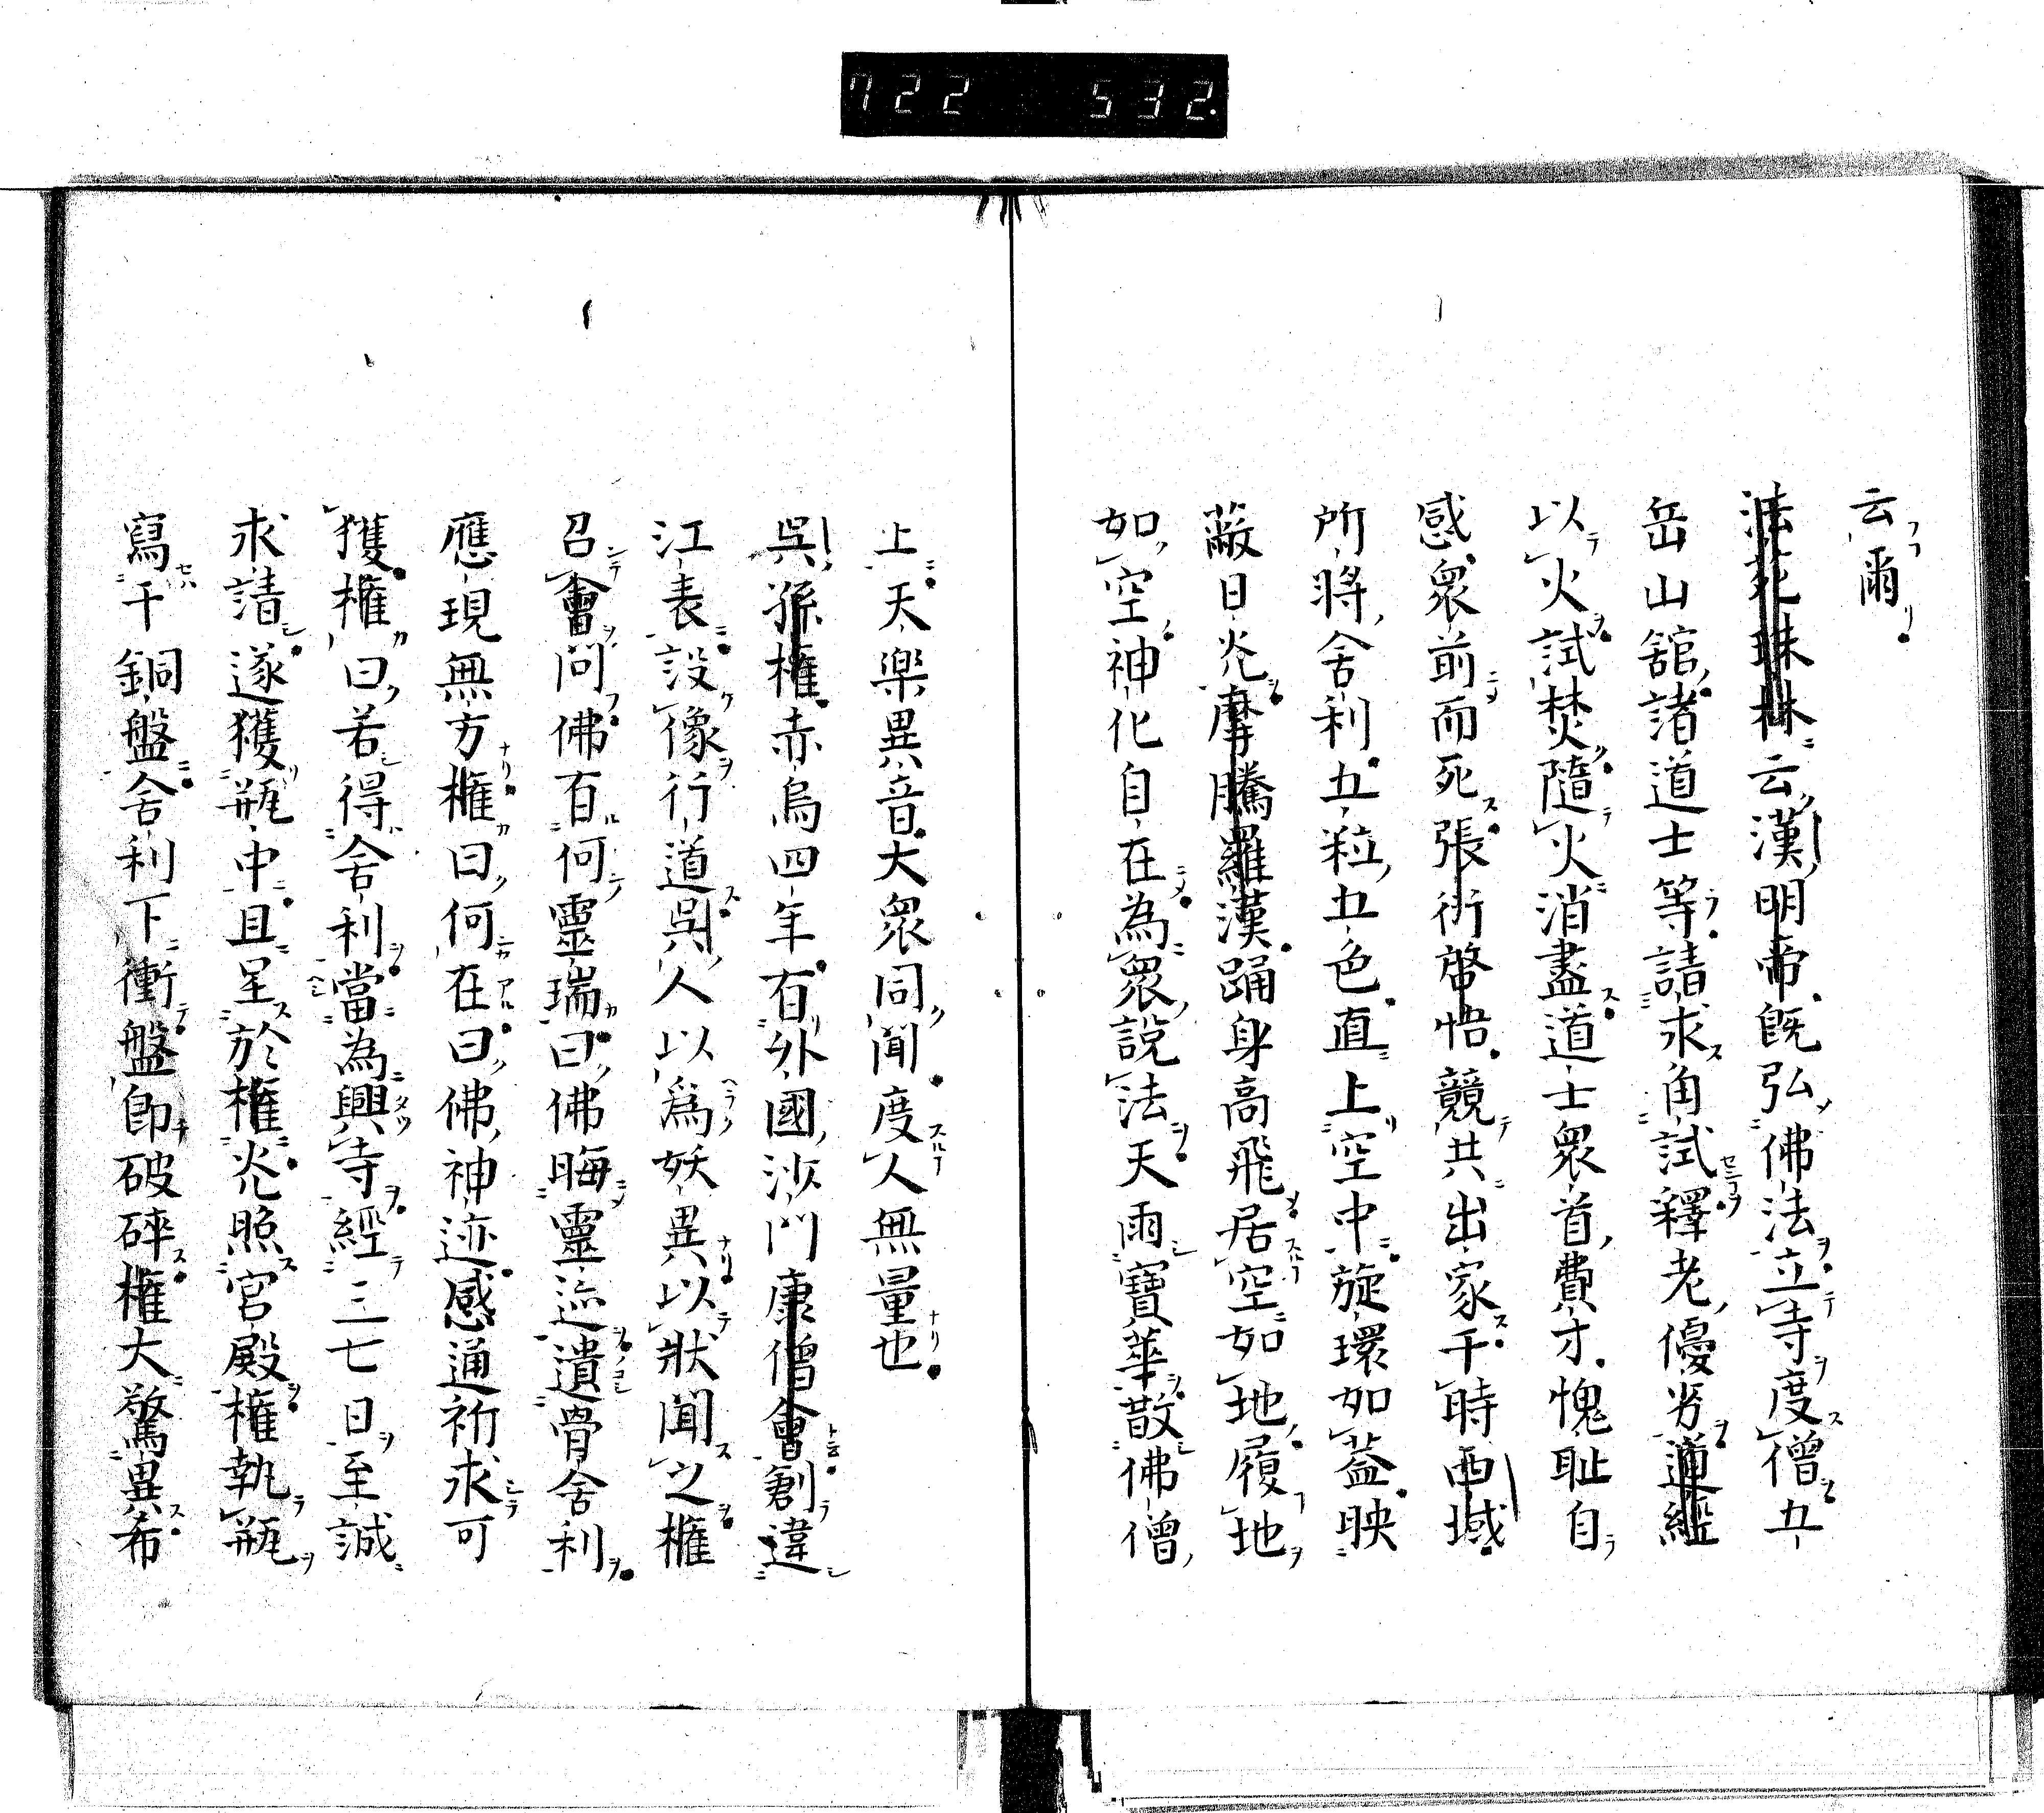 722 532
云爾
法苑珠林云漢明帝既弘佛法立寺度僧五
岳山舘諸道士等請求角試釋老優劣道經
以火試焚隨火消盡道士衆首費才愧恥自
感衆前而死張衍啓悟競共出家于時西域
所將舍利五粒五色直上空中旋環如蓋映
蔽日光摩騰羅漢踊身高飛居空如地履地
如空神化自在為衆說法天雨寶華散佛僧
上天樂異音大衆同聞度人無量也
吳孫權赤烏四年有外國沙門康僧會創違
江表設像行道吳人以爲妖異以狀聞之權
召會問佛有何靈瑞曰佛晦靈迹遺骨舍利
應現無方權曰何在曰佛神迹感通祈求可
獲權曰若得舍利當為興寺經三七日至誠
求請遂獲瓶中旦呈於權光照宮殿權執瓶
寫于銅盤舍利下衝盤即破碎權大驚異希